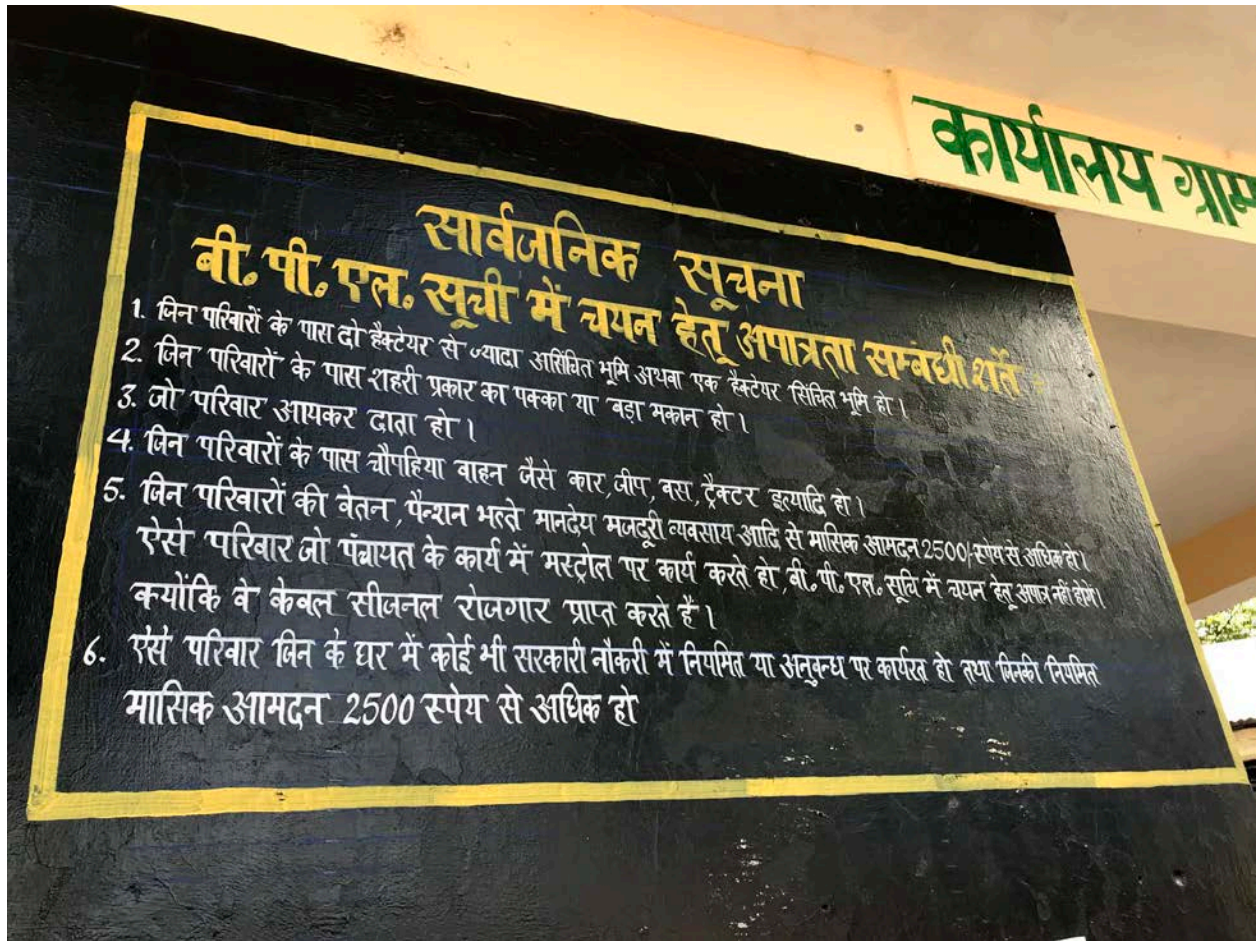 कार्यालय ग्राम
सार्वजनिक सूचना
बी. पी. एल. सूची में चयन हेतू अपात्रता सम्बधी शर्ते :
1. जिन परिवारों के पास दो हैक्टेयर से ज्यादा असिंचित भूमि अथवा एक हैक्टेयर सिंचित भूमि हो।
2. जिन परिवारों के पास शहरी प्रकार का पक्का या बड़ा मकान हो।
3. जो परिवार आयकर दाता हो।
4. जिन परिवारों के पास चौपहिया वाहन जैसे कार, जीप, बस, ट्रैक्टर इत्यादि हो।
5. जिन परिवारों की वेतन, पैन्शन भत्ते मानदेय मजदूरी व्यवसाय आदि से मासिक आमदन 2500/-रूपेय से अधिक हो।
ऐसे परिवार जो पंचायत के कार्य में मस्ट्रोल पर कार्य करते हो, बी. पी. एल. सूचि में चयन हेतू अपात्र नहीं होगें।
क्योंकि वे केवल सीजनल रोजगार प्राप्त करते हैं।
6. ऐसे परिवार जिन के घर में कोई भी सरकारी नौकरी में नियमित या अनुबन्ध पर कार्यरत हो तथा जिनकी नियमित
मासिक आमदन 2500 रूपेय से अधिक हो